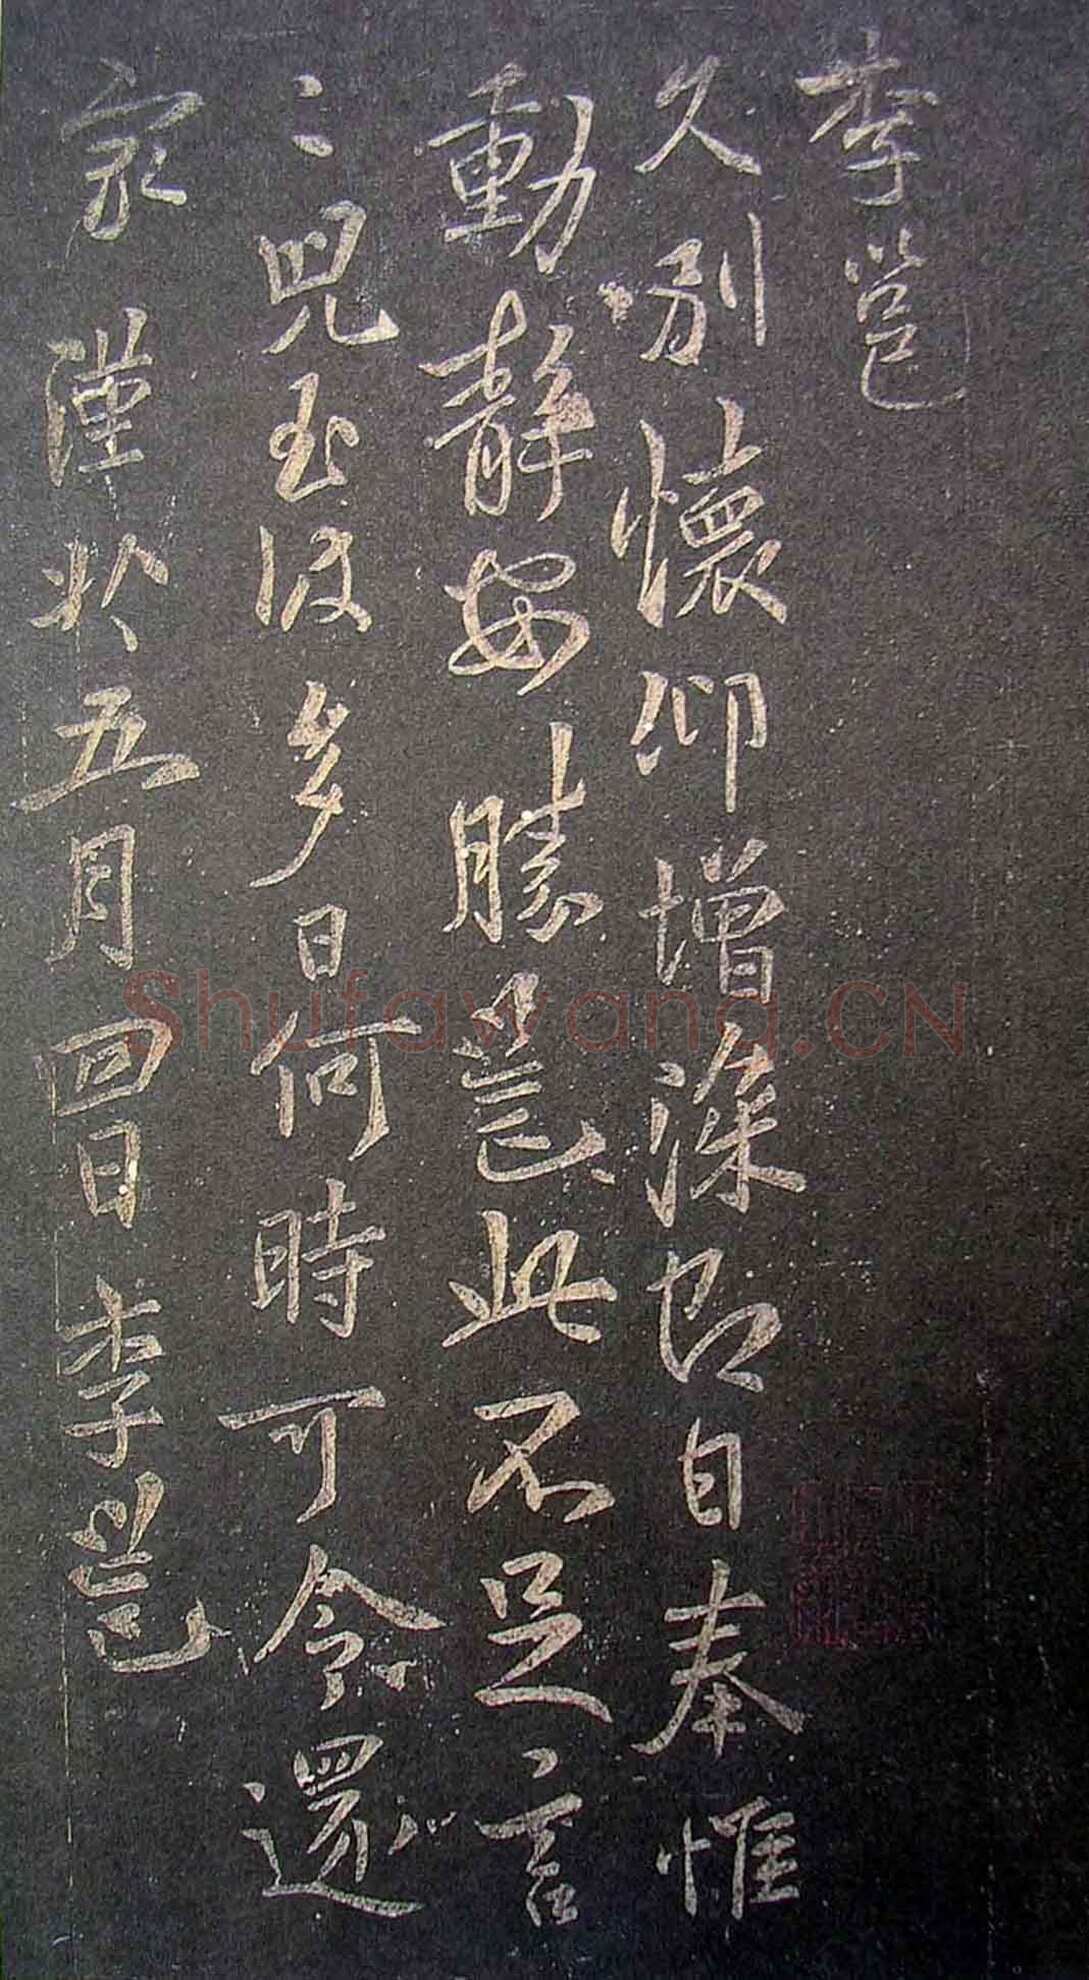 李邕
久別懷仰增深即日奉惟
動靜安勝邕此不足言
〻兒至彼多日何時可令還
家 謹狀五月四日李邕
Shufawang.CN